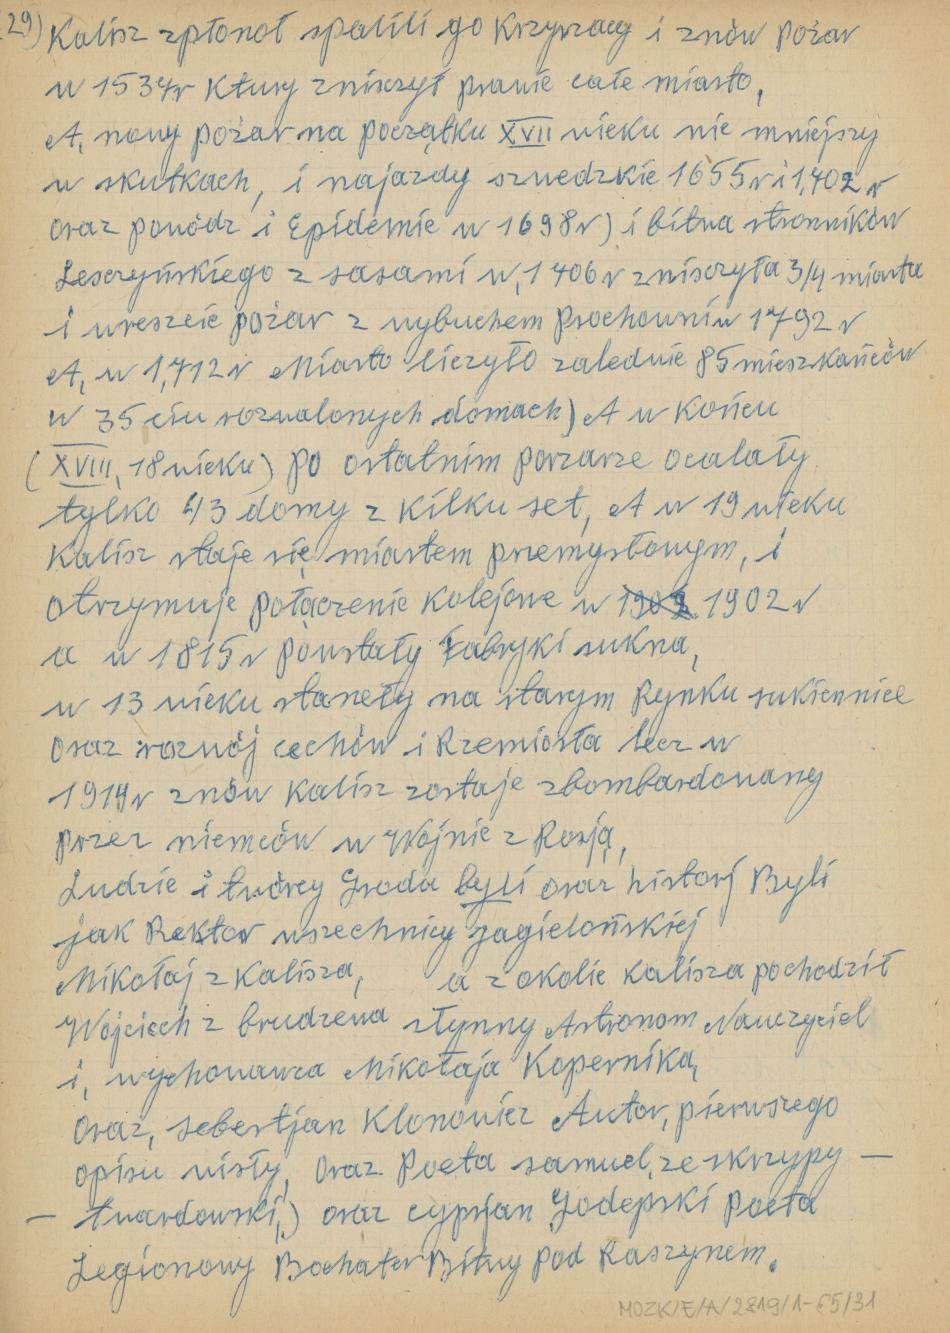 29) Kalisz zpłonoł spalili go Krzyrzacy i znów Pożar
w 1534r Ktury zniszczył prawie całe miasto,
A, nowy pożar na początku XVII wieku nie mniejszy
w skutkach, i najazdy szwedzkie 1655r i 1,702 r
oraz powódz i Epidemie w 1698r) i bitwa stronników
Leszczyńskiego z sasami w, 1706r zniszczyła 3/4 miasta
i wreszcie pożar z wybuchem Prochowni w 1792 r
A, w 1,712r Miasto liczyło zalednie 85 mieszkańców
w 35 ciu rozwalonych domach) A w Końcu
(XVIII, 18 wieku) po ostatnim porzarze ocalały
tylko 43 domy z Kilku set, A w 19 wieku
Kalisz staje się miastem przemysłowym, i
otrzymuje połączenie Kolejowe w 1902 1902 r
a w 1815 r powstały Fabryki sukna,
w 13 wieku staneły na starym Rynku sukiennice
oraz rozwój cechów i Rzemiosła lecz w
1914r znów Kalisz zostaje zbombardowany
przez niemców w Wojnie z Rosją,
Ludzie i twórcy Groda byli oraz historj Byli
jak Rektor wszechnicy jagielońskiej
Mikołaj z Kalisza, a z okolic Kalisza pochodził
Wojciech z brudzewa słynny Astronom Nauczyciel
i, wychowawca Mikołaja Kopernika,
oraz, sebestjan Klonowicz Autor, pierwszego
opisu wisły, oraz Poeta samuel, ze skrzypy —
— twardowski,) oraz cyprjan Godepski Poeta
Legionowy Bochater Bitwy pod Raszynem.
MOZK/E/A/2819/1-65/31